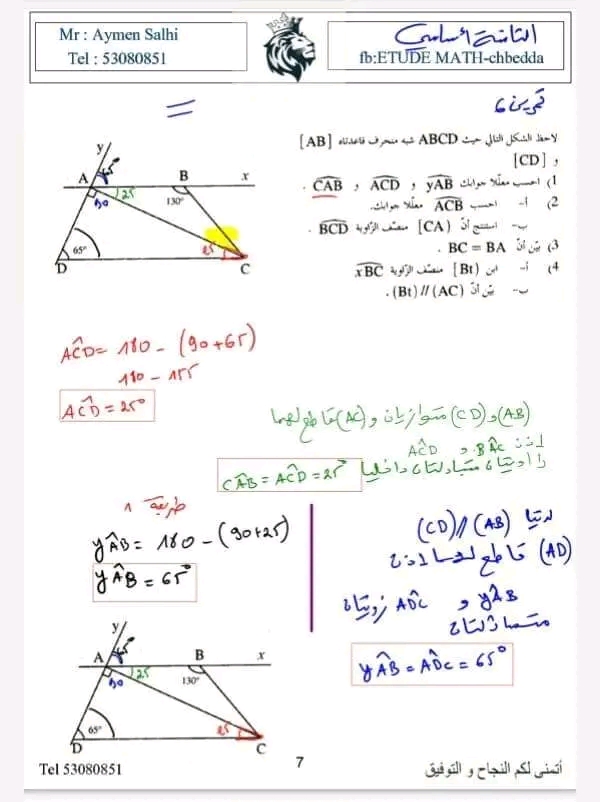 Mr : Aymen Salhi
Tel : 53080851
الثامنة أساسي
fb:ETUDE MATH-chbedda
تمرين 6
لاحظ الشكل التالي حيث ABCD شبه منحرف قاعدتاه [AB]
و [CD]
1) احسب معللا جوابك yAB و ACD و CAB .
2) أ- احسب ACB معللا جوابك.
ب- استنتج أنّ [CA) منصّف الزاوية BCD .
3) بيّن أنّ BC = BA .
4) أ- ابن [Bt) منصّف الزاوية xBC
ب- بيّن أنّ (Bt) // (AC) .
y
A 25 B x
90 130°
65° 25
D C
AĈD = 180 - (90+65)
180 - 155
AĈD = 25°
(AB) و (CD) متوازيان و (AC) قاطع لهما
اذن BÂC و AĈD
زاويتان متبادلتان داخليا
CÂB = AĈD = 25°
طريقة 1
yÂB = 180 - (90+25)
yÂB = 65°
لدينا (AB) // (CD)
(AD) قاطع لهما اذن
yÂB و AD̂C زاويتان
متماثلتان
yÂB = AD̂C = 65°
y
A 25 B x
90 130°
65° 25
D C
Tel 53080851
7
أتمنى لكم النجاح و التوفيق